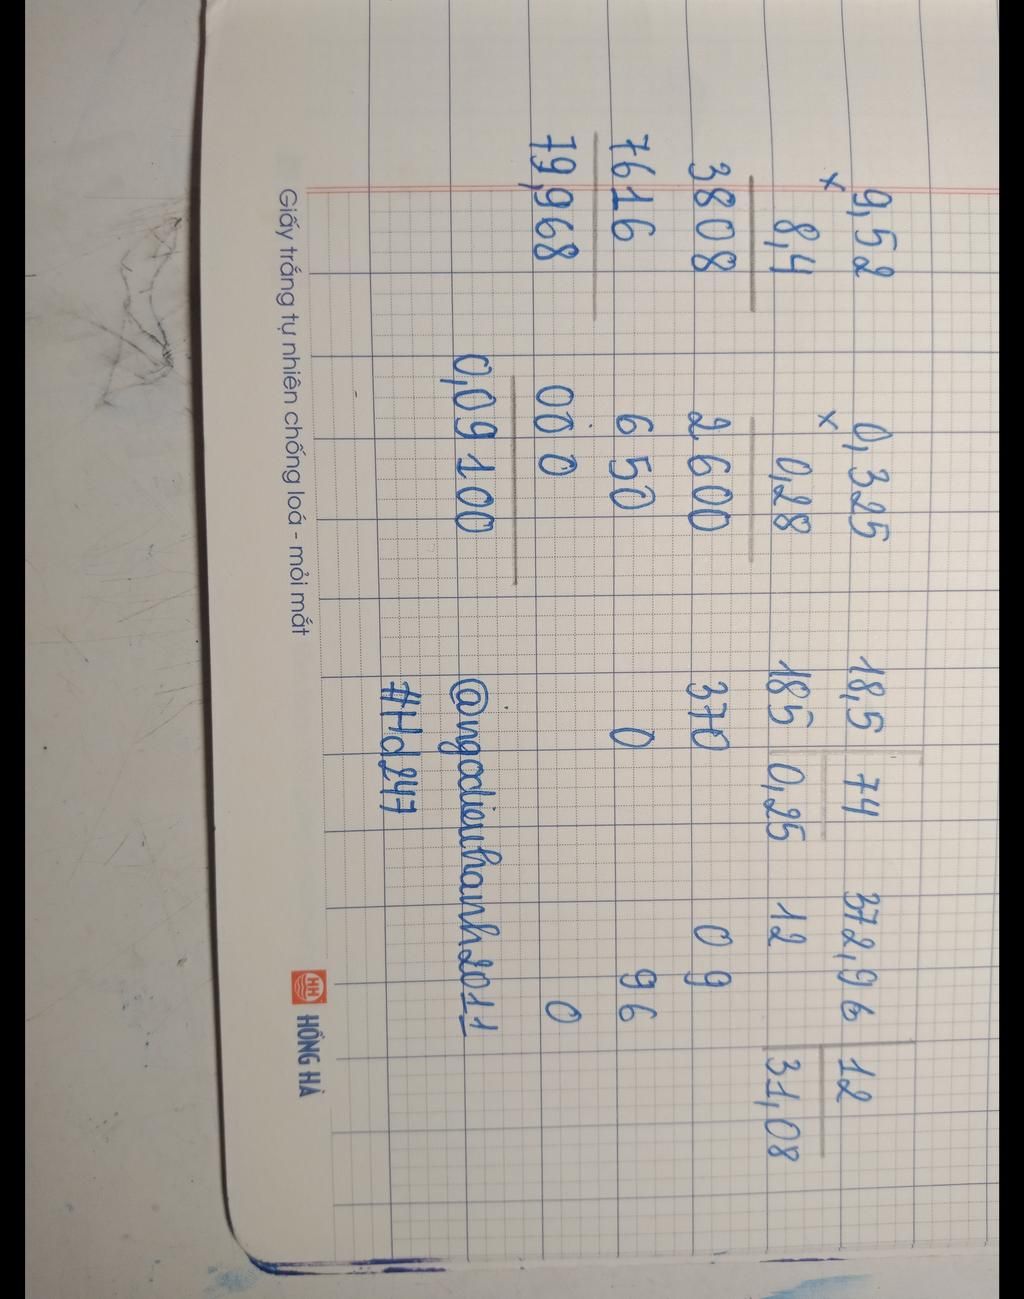 9,52 0,325 18,5 74 372,96 12
x x
8,4 0,28 185 0,25 12 31,08
3808 2600 370 09
7616 650 0 96
79,968 000 0
0,09100 @ngodieuhanh2011
#Hd247
Giấy trắng tự nhiên chống loá - mỏi mắt HH HỒNG HÀ